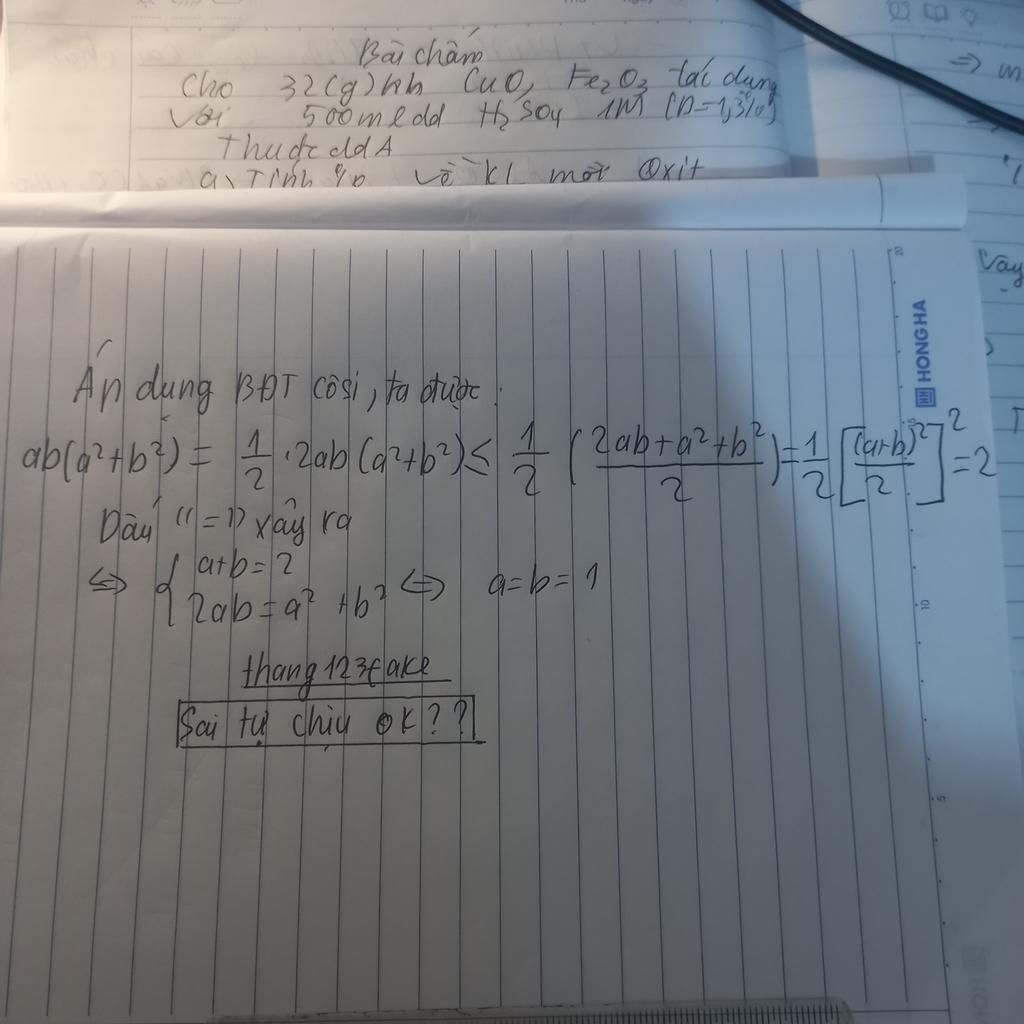 Bài chấm
Cho 32(g) hh CuO, Fe2O3 tác dụng
với 500ml dd H2SO4 1M (D=1,
Thuđc ddA
a, Tính % về KL mỗi Oxit
HONG HA
Vậy
Áp dụng BĐT côsi, ta được:
ab(a²+b²) = 1/2 · 2ab(a²+b²) ≤ 1/2 (2ab+a²+b²/2) = 1/2 [(a+b)²/2]² = 2
Dấu "=" xảy ra
⇔ { a+b=2
2ab=a²+b² ⇔ a=b=1
10
thang123fake
Sai tự chịu OK??
5